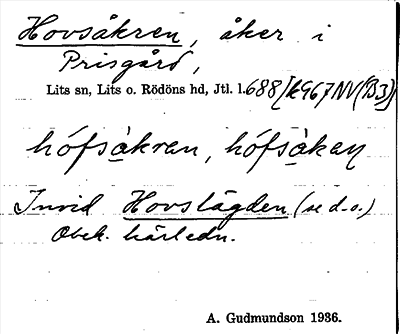 Hovsåkren, åker i
Prisgård,
Lits sn, Lits o. Rödöns hd, Jtl. l. 688 [k967NV(B3)]
hófsàkran, hófsàkaṇ
Invid Hovslägden (se d.o.)
Obek. härledn.
A. Gudmundson 1936.